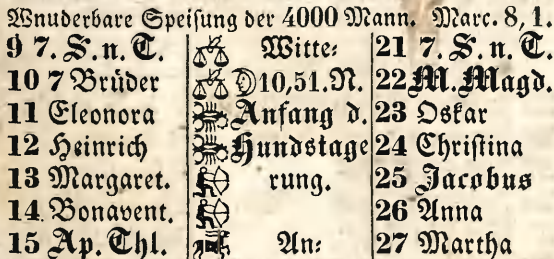 Wnuderbare Speisung der 4000 Mann. Marc. 8, 1.
9 7. S. n. T. Witte: 21 7. S. n. T.
10 7 Brüder 10,51. N. 22 M. Magd.
11 Eleonora Anfang d. 23 Oskar
12 Heinrich Hundstage 24 Christina
13 Margaret. rung. 25 Jacobus
14 Bonavent. 26 Anna
15 Ap. Thl. An: 27 Martha